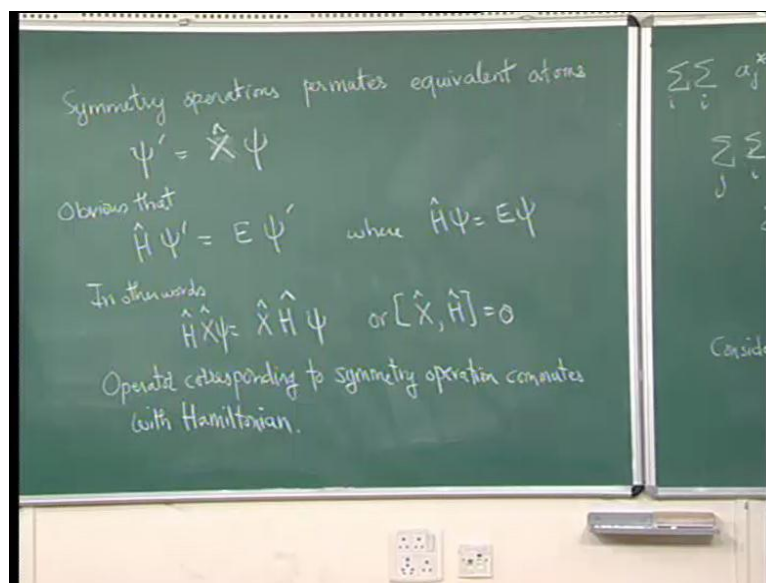 Symmetry operations permutes equivalent atoms
ψ′ = X̂ ψ
Obvious that
Ĥ ψ′ = E ψ′ where Ĥψ = Eψ
In other words
Ĥ X̂ψ = X̂ Ĥ ψ or [X̂, Ĥ] = 0
Operator corresponding to symmetry operation commutes
with Hamiltonian.
∑ᵢ ∑ᵢ aⱼ*
∑ⱼ ∑ᵢ